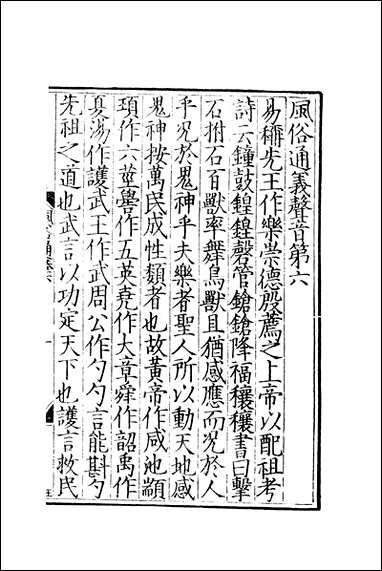 風俗通義聲音第六
易稱先王作樂崇德殷薦之上帝以配祖考
詩云鐘鼓鍠鍠磬管鎗鎗降福穰穰書曰擊
石拊石百獸率舞鳥獸且猶感應而況於人
乎況於鬼神乎夫樂者聖人所以動天地感
鬼神按萬民成性類者也故黃帝作咸池顓
頊作六莖嚳作五英堯作大章舜作韶禹作
夏湯作護武王作武周公作勺勺言能斟勺
先祖之道也武言以功定天下也護言救民